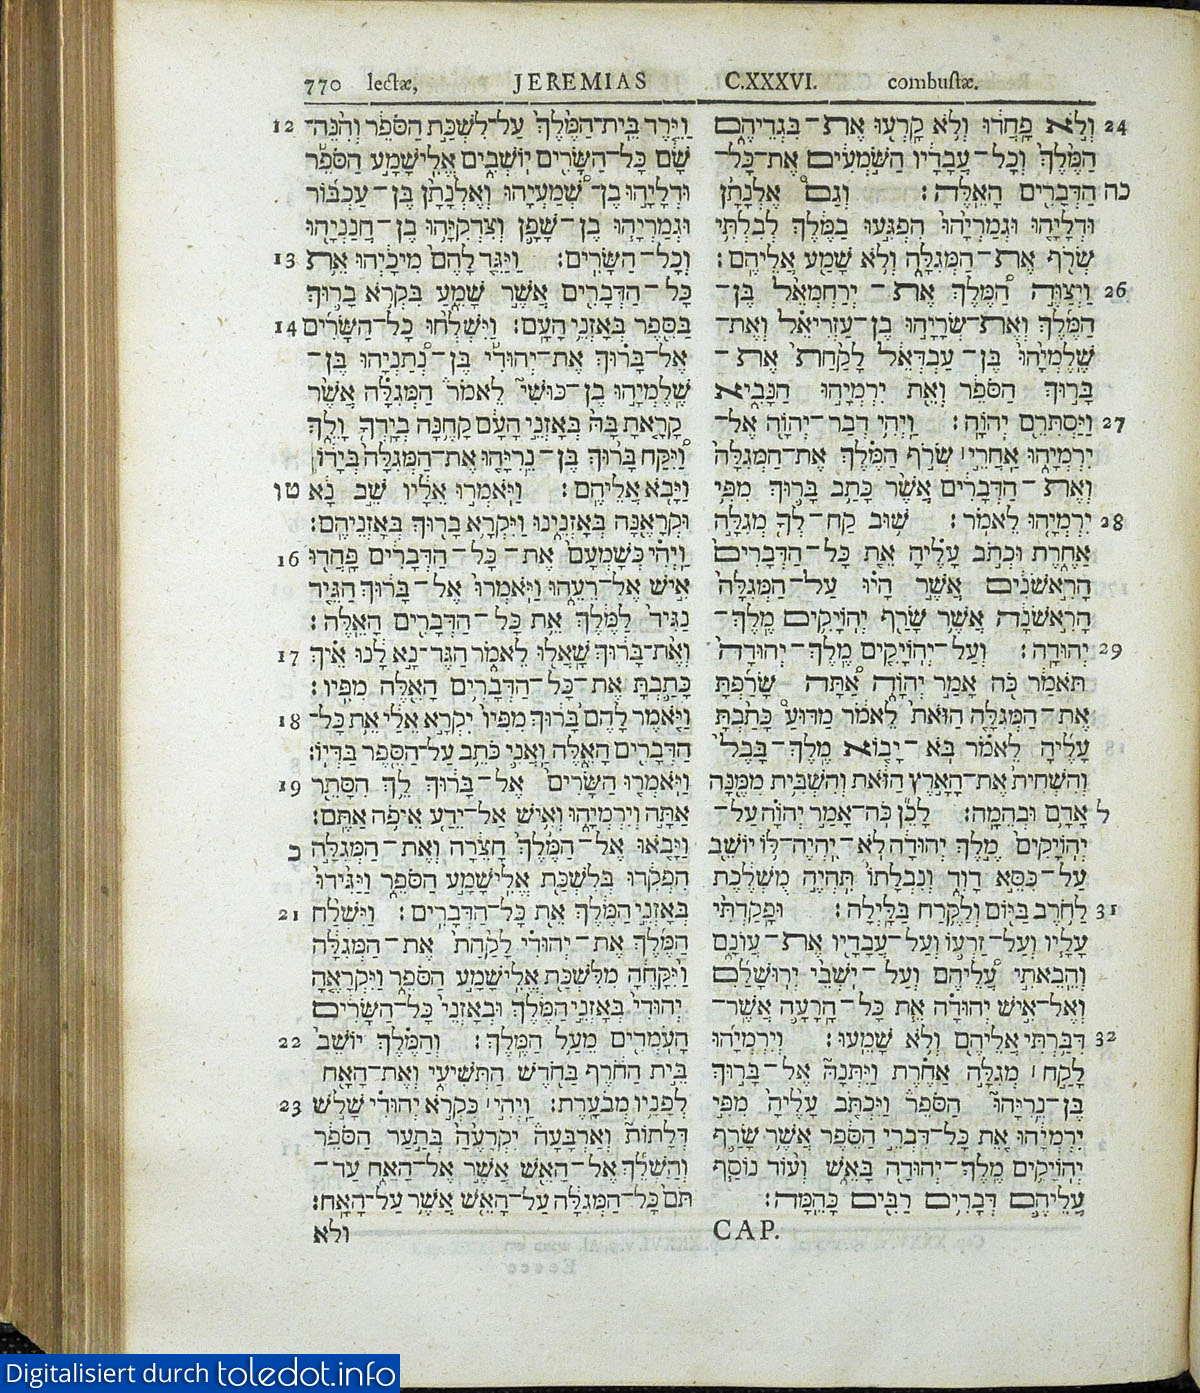 770 lectæ, JEREMIAS C.XXXVI. combustæ.
12 וַיֵּרֶד בֵּית־הַמֶּלֶךְ עַל־לִשְׁכַּת הַסֹּפֵר וְהִנֵּה־
שָׁם כָּל־הַשָּׂרִים יוֹשְׁבִים אֱלִישָׁמָע הַסֹּפֵר
וּדְלָיָהוּ בֶן־שְׁמַעְיָהוּ וְאֶלְנָתָן בֶּן־עַכְבּוֹר
וּגְמַרְיָהוּ בֶן־שָׁפָן וְצִדְקִיָּהוּ בֶן־חֲנַנְיָהוּ
13 וְכָל־הַשָּׂרִים׃ וַיַּגֵּד לָהֶם מִיכָיְהוּ אֵת
כָּל־הַדְּבָרִים אֲשֶׁר שָׁמֵעַ בִּקְרֹא בָרוּךְ
14 בַּסֵּפֶר בְּאָזְנֵי הָעָם׃ וַיִּשְׁלְחוּ כָל־הַשָּׂרִים
אֶל־בָּרוּךְ אֶת־יְהוּדִי בֶּן־נְתַנְיָהוּ בֶּן־
שֶׁלֶמְיָהוּ בֶן־כּוּשִׁי לֵאמֹר הַמְּגִלָּה אֲשֶׁר
קָרָאתָ בָּהּ בְּאָזְנֵי הָעָם קָחֶנָּה בְיָדְךָ וָלֵךְ
וַיִּקַּח בָּרוּךְ בֶּן־נֵרִיָּהוּ אֶת־הַמְּגִלָּה בְּיָדוֹ
טו וַיָּבֹא אֲלֵיהֶם׃ וַיֹּאמְרוּ אֵלָיו שֵׁב נָא
וּקְרָאֶנָּה בְּאָזְנֵינוּ וַיִּקְרָא בָרוּךְ בְּאָזְנֵיהֶם׃
16 וַיְהִי כְּשָׁמְעָם אֶת־כָּל־הַדְּבָרִים פָּחֲדוּ
אִישׁ אֶל־רֵעֵהוּ וַיֹּאמְרוּ אֶל־בָּרוּךְ הַגֵּיד
נַגִּיד לַמֶּלֶךְ אֵת כָּל־הַדְּבָרִים הָאֵלֶּה׃
17 וְאֶת־בָּרוּךְ שָׁאֲלוּ לֵאמֹר הַגֶּד־נָא לָנוּ אֵיךְ
כָּתַבְתָּ אֶת־כָּל־הַדְּבָרִים הָאֵלֶּה מִפִּיו׃
18 וַיֹּאמֶר לָהֶם בָּרוּךְ מִפִּיו יִקְרָא אֵלַי אֵת כָּל־
הַדְּבָרִים הָאֵלֶּה וַאֲנִי כֹּתֵב עַל־הַסֵּפֶר בַּדְּיוֹ׃
19 וַיֹּאמְרוּ הַשָּׂרִים אֶל־בָּרוּךְ לֵךְ הִסָּתֵר
אַתָּה וְיִרְמְיָהוּ וְאִישׁ אַל־יֵדַע אֵיפֹה אַתֶּם׃
כ וַיָּבֹאוּ אֶל־הַמֶּלֶךְ חָצֵרָה וְאֶת־הַמְּגִלָּה
הִפְקִדוּ בְּלִשְׁכַּת אֱלִישָׁמָע הַסֹּפֵר וַיַּגִּידוּ
21 בְּאָזְנֵי הַמֶּלֶךְ אֵת כָּל־הַדְּבָרִים׃ וַיִּשְׁלַח
הַמֶּלֶךְ אֶת־יְהוּדִי לָקַחַת אֶת־הַמְּגִלָּה
וַיִּקָּחֶהָ מִלִּשְׁכַּת אֱלִישָׁמָע הַסֹּפֵר וַיִּקְרָאֶהָ
יְהוּדִי בְּאָזְנֵי הַמֶּלֶךְ וּבְאָזְנֵי כָּל־הַשָּׂרִים
22 הָעֹמְדִים מֵעַל הַמֶּלֶךְ׃ וְהַמֶּלֶךְ יוֹשֵׁב
בֵּית הַחֹרֶף בַּחֹדֶשׁ הַתְּשִׁיעִי וְאֶת־הָאָח
23 לְפָנָיו מְבֹעָרֶת׃ וַיְהִי׀ כִּקְרֹא יְהוּדִי שָׁלֹשׁ
דְּלָתוֹת וְאַרְבָּעָה יִקְרָעֶהָ בְּתַעַר הַסֹּפֵר
וְהַשְׁלֵךְ אֶל־הָאֵשׁ אֲשֶׁר אֶל־הָאָח עַד־
תֹּם כָּל־הַמְּגִלָּה עַל־הָאֵשׁ אֲשֶׁר עַל־הָאָח׃
ולא
24 וְלֹא פָחֲדוּ וְלֹא קָרְעוּ אֶת־בִּגְדֵיהֶם
הַמֶּלֶךְ וְכָל־עֲבָדָיו הַשֹּׁמְעִים אֵת־כָּל־
כה הַדְּבָרִים הָאֵלֶּה׃ וְגַם אֶלְנָתָן
וּדְלָיָהוּ וּגְמַרְיָהוּ הִפְגִּעוּ בַמֶּלֶךְ לְבִלְתִּי
שְׂרֹף אֶת־הַמְּגִלָּה וְלֹא שָׁמַע אֲלֵיהֶם׃
26 וַיְצַוֶּה הַמֶּלֶךְ אֶת־יְרַחְמְאֵל בֶּן־
הַמֶּלֶךְ וְאֶת־שְׂרָיָהוּ בֶן־עַזְרִיאֵל וְאֶת־
שֶׁלֶמְיָהוּ בֶּן־עַבְדְּאֵל לָקַחַת אֶת־
בָּרוּךְ הַסֹּפֵר וְאֵת יִרְמְיָהוּ הַנָּבִיא
27 וַיַּסְתִּרֵם יְהוָה׃ וַיְהִי דְבַר־יְהוָה אֶל־
יִרְמְיָהוּ אַחֲרֵי׀ שְׂרֹף הַמֶּלֶךְ אֶת־הַמְּגִלָּה
וְאֶת־הַדְּבָרִים אֲשֶׁר כָּתַב בָּרוּךְ מִפִּי
28 יִרְמְיָהוּ לֵאמֹר׃ שׁוּב קַח־לְךָ מְגִלָּה
אַחֶרֶת וּכְתֹב עָלֶיהָ אֵת כָּל־הַדְּבָרִים
הָרִאשֹׁנִים אֲשֶׁר הָיוּ עַל־הַמְּגִלָּה
הָרִאשֹׁנָה אֲשֶׁר שָׂרַף יְהוֹיָקִים מֶלֶךְ־
29 יְהוּדָה׃ וְעַל־יְהוֹיָקִים מֶלֶךְ־יְהוּדָה
תֹּאמַר כֹּה אָמַר יְהוָה אַתָּה שָׂרַפְתָּ
אֶת־הַמְּגִלָּה הַזֹּאת לֵאמֹר מַדּוּעַ כָּתַבְתָּ
עָלֶיהָ לֵאמֹר בֹּא־יָבוֹא מֶלֶךְ־בָּבֶל
וְהִשְׁחִית אֶת־הָאָרֶץ הַזֹּאת וְהִשְׁבִּית מִמֶּנָּה
ל אָדָם וּבְהֵמָה׃ לָכֵן כֹּה־אָמַר יְהוָה עַל־
יְהוֹיָקִים מֶלֶךְ יְהוּדָה לֹא־יִהְיֶה־לּוֹ יוֹשֵׁב
עַל־כִּסֵּא דָוִד וְנִבְלָתוֹ תִּהְיֶה מֻשְׁלֶכֶת
31 לַחֹרֶב בַּיּוֹם וְלַקֶּרַח בַּלָּיְלָה׃ וּפָקַדְתִּי
עָלָיו וְעַל־זַרְעוֹ וְעַל־עֲבָדָיו אֶת־עֲוֺנָם
וְהֵבֵאתִי עֲלֵיהֶם וְעַל־יֹשְׁבֵי יְרוּשָׁלִַם
וְאֶל־אִישׁ יְהוּדָה אֵת כָּל־הָרָעָה אֲשֶׁר־
32 דִּבַּרְתִּי אֲלֵיהֶם וְלֹא שָׁמֵעוּ׃ וְיִרְמְיָהוּ
לָקַח׀ מְגִלָּה אַחֶרֶת וַיִּתְּנָהּ אֶל־בָּרוּךְ
בֶּן־נֵרִיָּהוּ הַסֹּפֵר וַיִּכְתֹּב עָלֶיהָ מִפִּי
יִרְמְיָהוּ אֵת כָּל־דִּבְרֵי הַסֵּפֶר אֲשֶׁר שָׂרַף
יְהוֹיָקִים מֶלֶךְ־יְהוּדָה בָּאֵשׁ וְעוֹד נוֹסַף
עֲלֵיהֶם דְּבָרִים רַבִּים כָּהֵמָּה׃
CAP.
Digitalisiert durch toledot.info